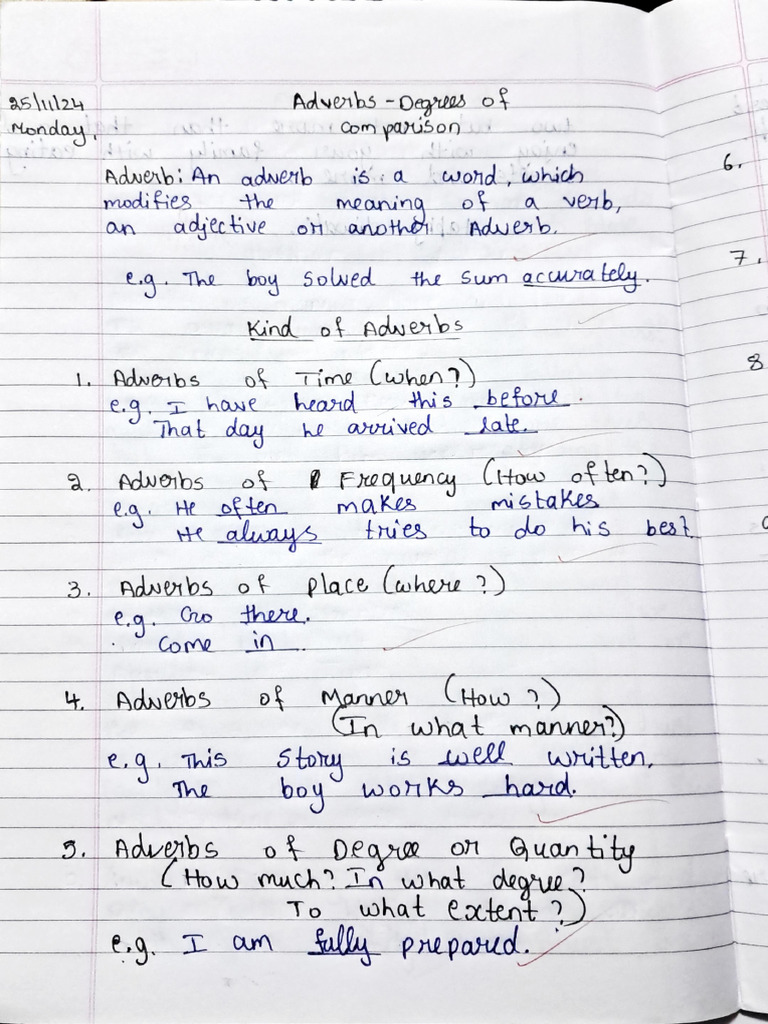 25/11/24
Monday.
Adverbs - Degrees of
comparison
Adverb: An adverb is a word, which
modifies the meaning of a verb,
an adjective or another Adverb.
e.g. The boy solved the sum accurately.
Kind of Adverbs
1. Adverbs of Time (when?)
e.g. I have heard this before.
That day he arrived late.
2. Adverbs of Frequency (How often?)
e.g. He often makes mistakes
He always tries to do his best
3. Adverbs of place (where?)
e.g. Go there.
come in
4. Adverbs of Manner (How?)
(In what manner?)
e.g. This story is well written.
The boy works hard.
5. Adverbs of Degree or Quantity
(How much? In what degree?
To what extent?)
e.g. I am fully prepared.
6.
7.
8